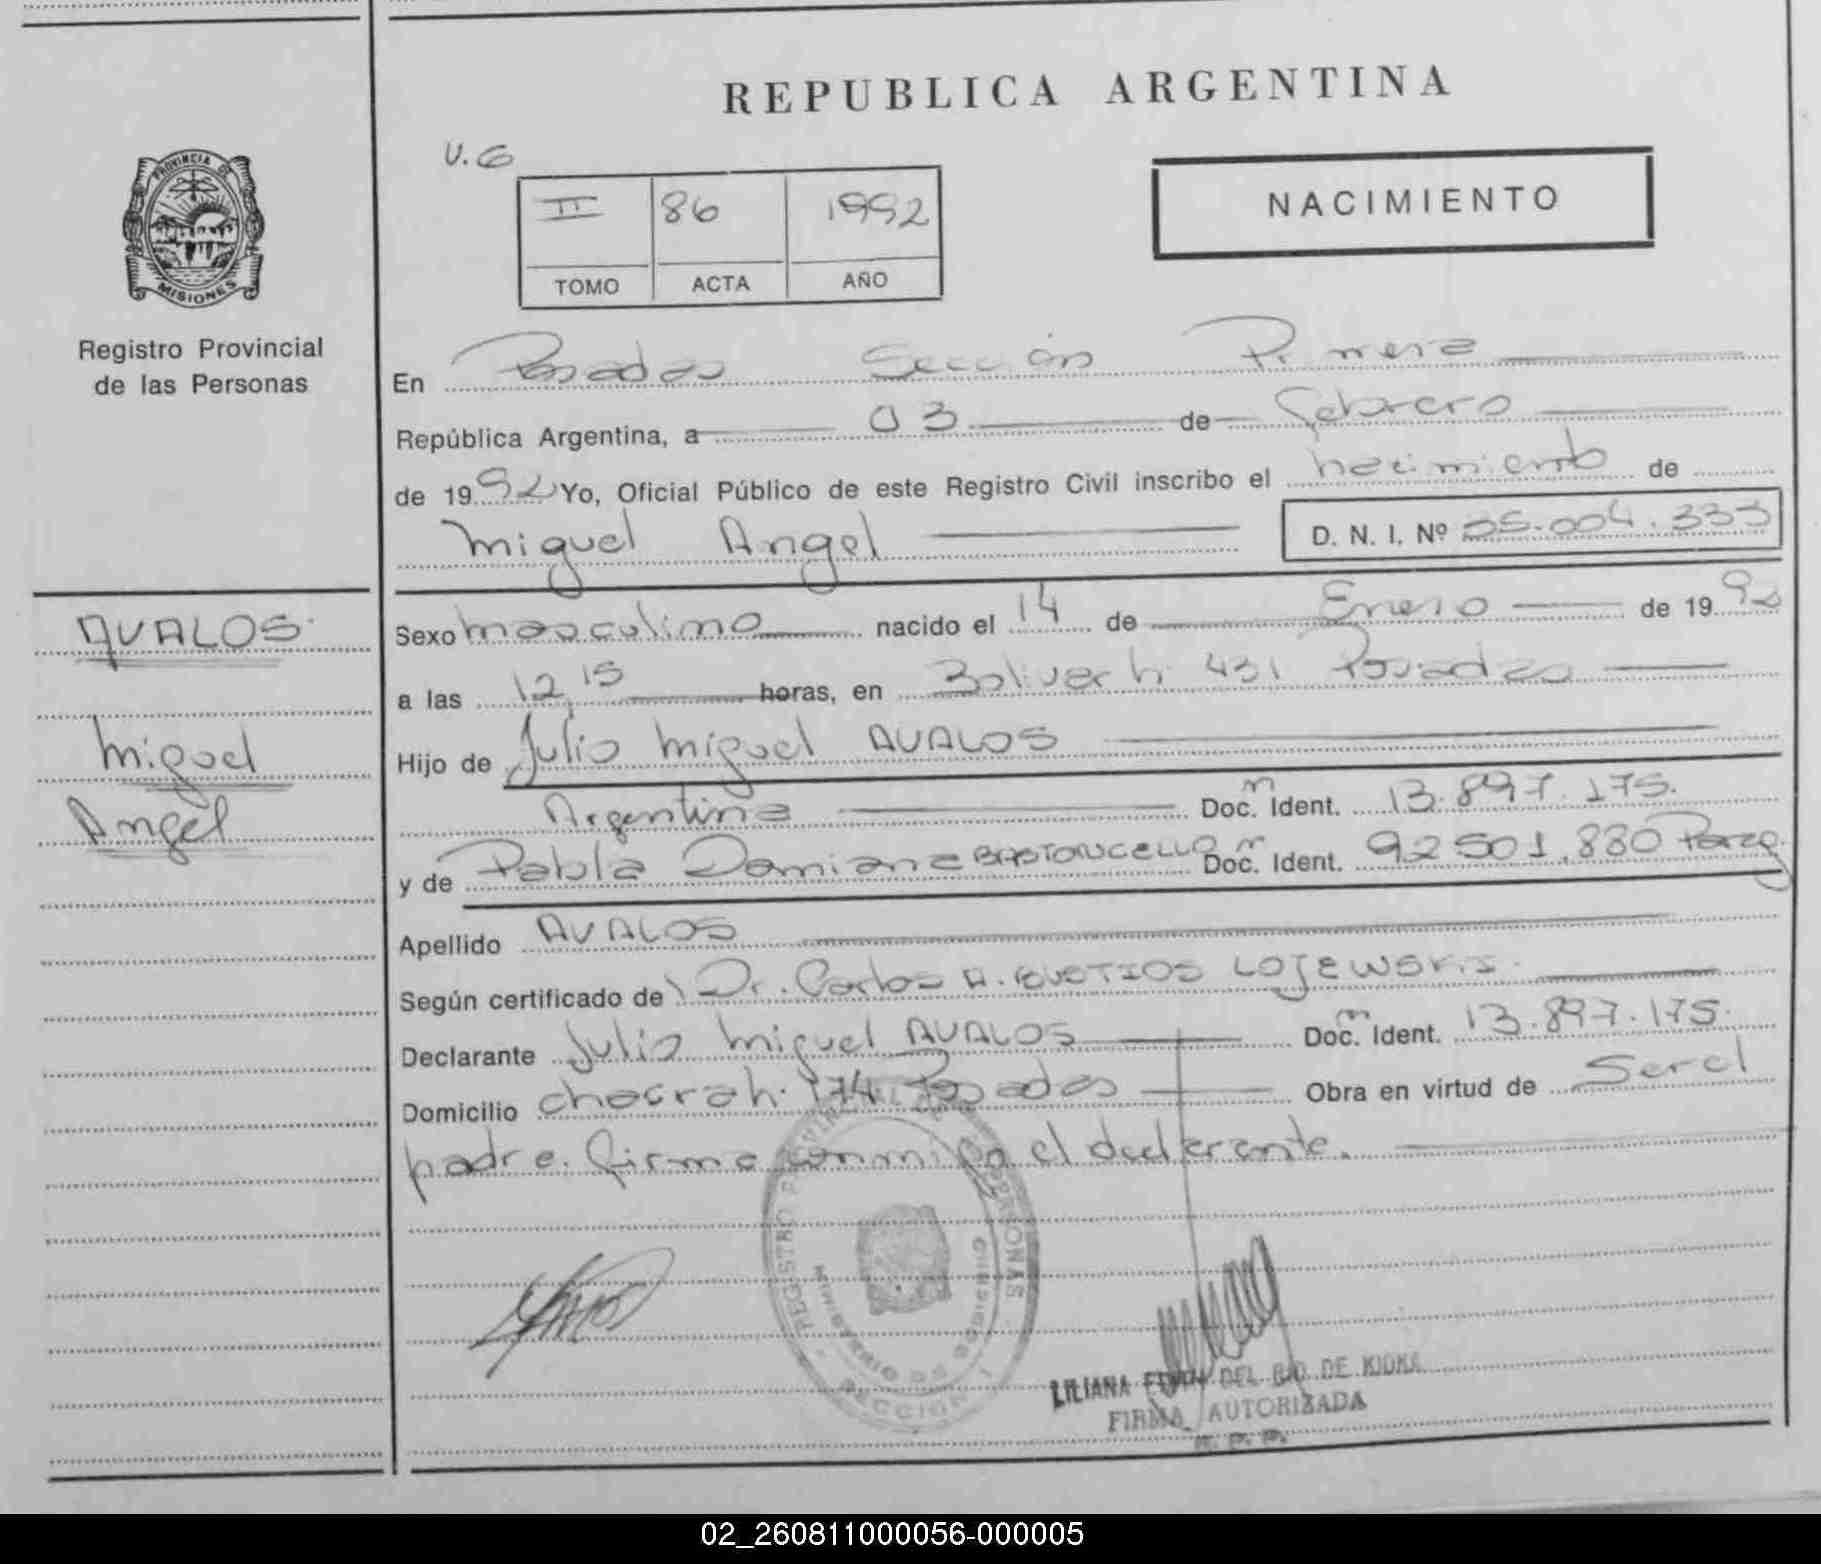 REPUBLICA ARGENTINA
PROVINCIA DE
MISIONES
Registro Provincial
de las Personas
II 86 1992
TOMO ACTA AÑO
NACIMIENTO
En Posadas Sección Primera
República Argentina, a 03 de Febrero
de 1992 Yo, Oficial Público de este Registro Civil inscribo el nacimiento de
Miguel Angel D. N. I. Nº 35.004.333
AVALOS
Miguel
Angel
Sexo masculino nacido el 14 de Enero de 1992
a las 12,15 horas, en Bolivar 431 Posadas
Hijo de Julio Miguel AVALOS
Argentina Doc. Ident. 13.897.175.
y de Pabla Damiana Doc. Ident. 92 501.880
Apellido AVALOS
Según certificado de Dr. Carlos A. BUSTIOS LOJEWSKI.
Declarante Julio Miguel AVALOS Doc. Ident. 13.897.175.
Domicilio chacra 174 Posados Obra en virtud de Ser el
padre. Firma conmigo el declarante.
REGISTRO PERSONAS
MINISTERIO DE GOBIERNO
SECCION 1
LILIANA DEL RIO DE
FIRMA AUTORIZADA
02_260811000056-000005